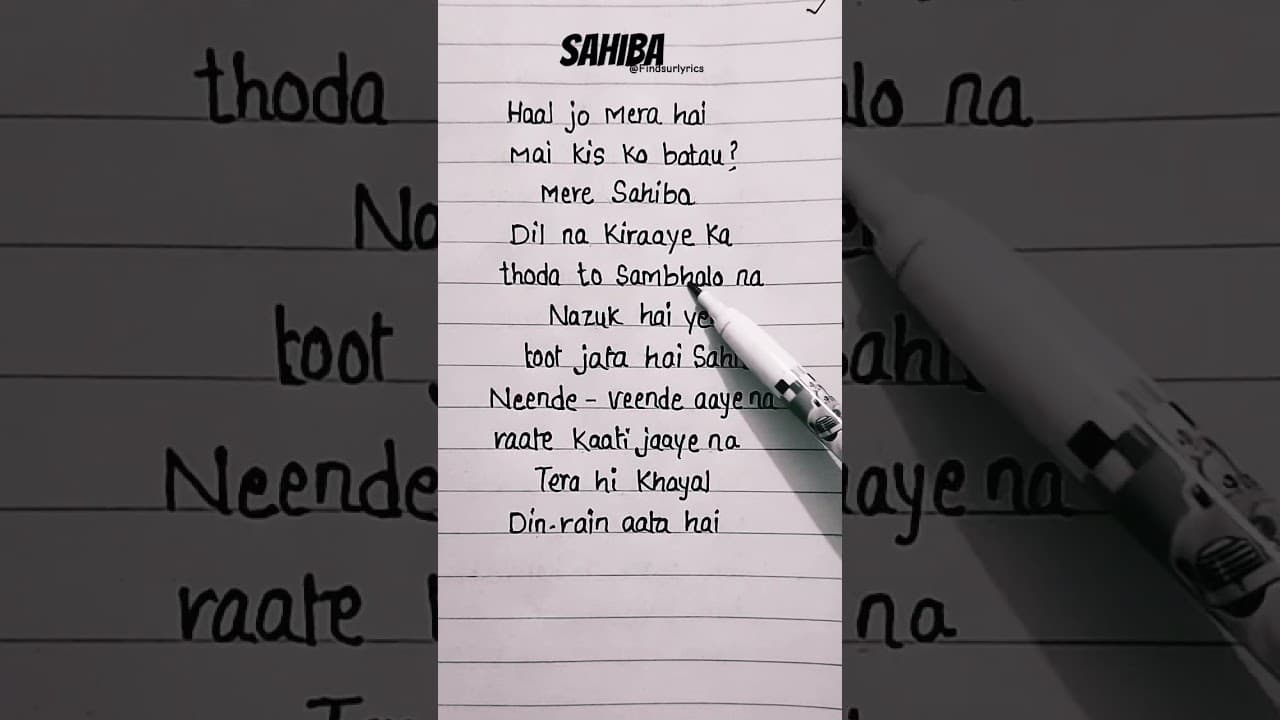 SAHIBA
@Findsurlyrics
Haal jo Mera hai
Mai kis ko batau?
Mere Sahiba
Dil na Kiraaye Ka
thoda to Sambhalo na
Nazuk hai ye
toot jata hai
Neende - veende aaye na
raate Kaati jaaye na
Tera hi Khayal
Din-rain aata hai